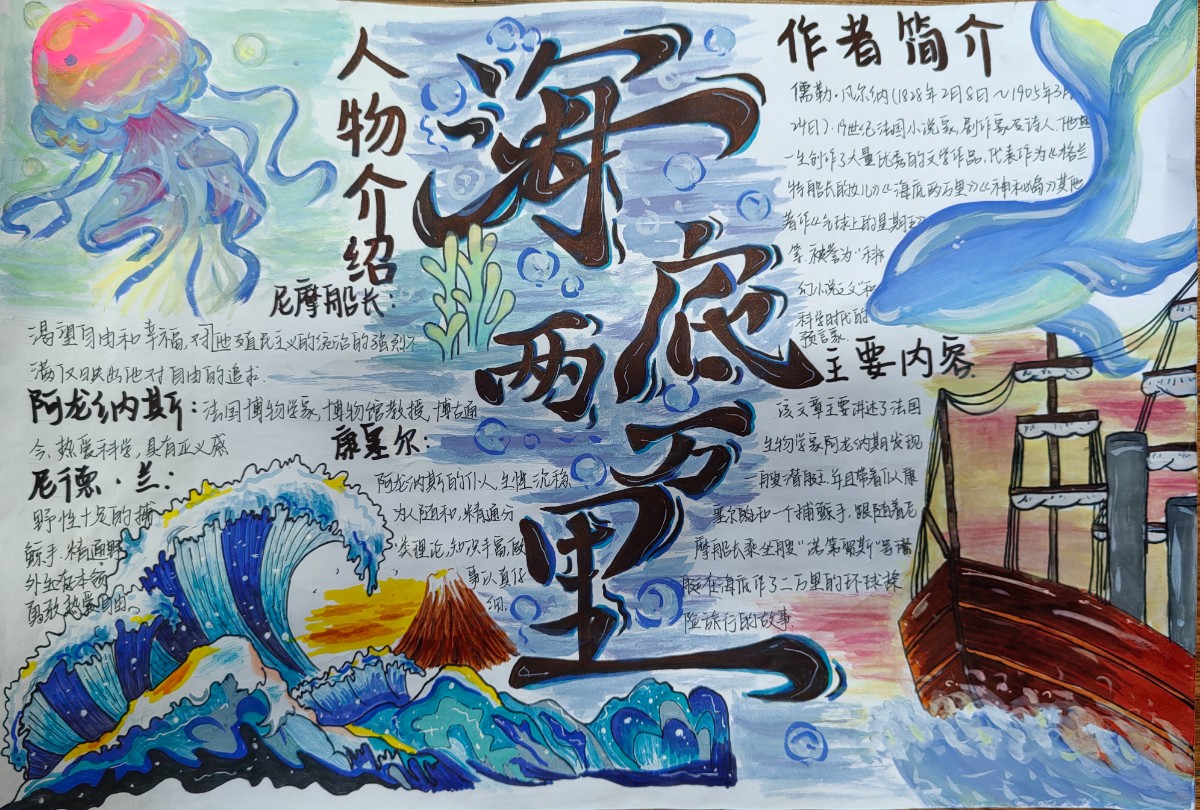 海底两万里
人物介绍
尼摩船长：
渴望自由和幸福，对殖民主义的统治的强烈不
满反映出他对自由的追求.
阿龙纳斯：法国博物学家,博物馆教授,博古通
今,热爱科学,具有正义感
尼德·兰：
野性十足的捕
鲸手,精通野
外生存本领
勇敢热爱自由。
康塞尔：
阿龙纳斯的仆人生性沉稳
为人随和,精通分
类理论,知识丰富,做
事认真仔
细.
作者简介
儒勒·凡尔纳(1828年2月8日～1905年3月
24日).19世纪法国小说家,剧作家及诗人.他
一生创作了大量优秀的文学作品,代表作为《格兰
特船长的儿女》《海底两万里》《神秘岛》其他
著作《气球上的星期五》
等,被誉为“科
幻小说之父”和
科学时代的
预言家
主要内容
该文章主要讲述了法国
生物学家阿龙纳斯发现
一艘潜艇并且带着仆人康
塞尔和一个捕鲸手,跟随着尼
摩船长乘坐艘“诺第留斯”号潜
艇在海底作了二万里的环球探
险旅行的故事